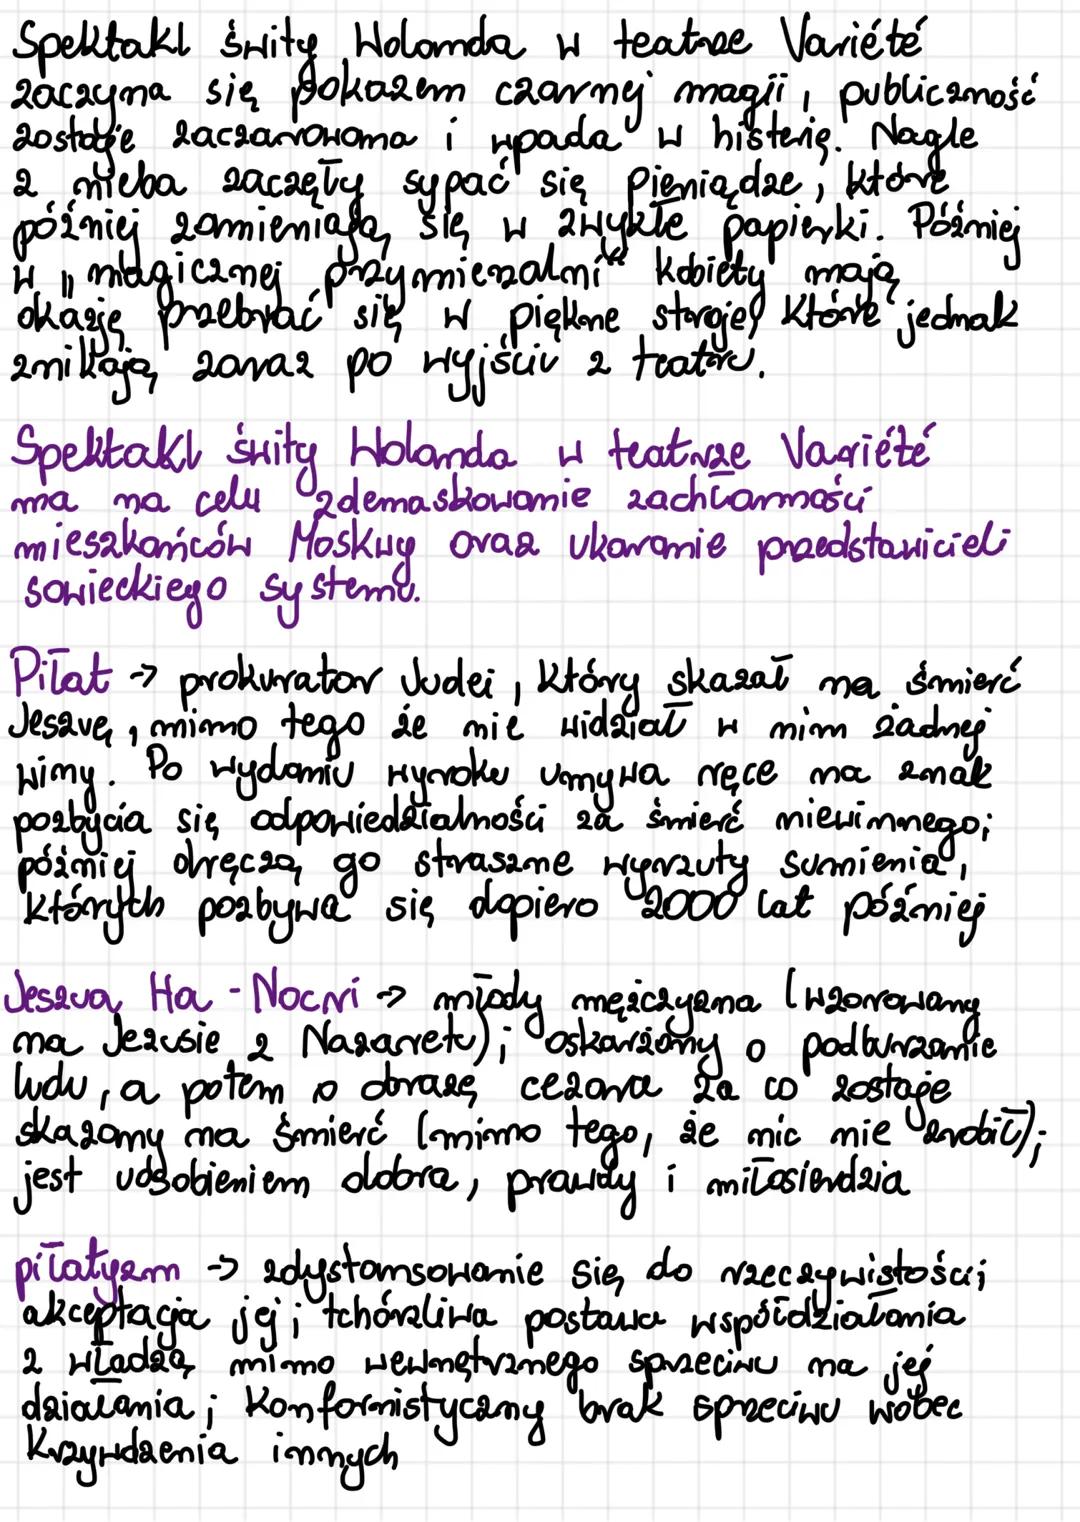 Spektakl świty Wolanda w teatrze Variété
zaczyna się pokazem czarnej magii, publiczność
zostaje zaczarowana i wpada w histerię. Nagle
z nieba zaczęły sypać się pieniądze, które
później zamieniają się w zwykłe papierki. Później
w „magicznej przymierzalni" kobiety mają
okazję przebrać się w piękne stroje, które jednak
znikają zaraz po wyjściu z teatru.
Spektakl świty Wolanda w teatrze Variété
ma na celu zdemaskowanie zachłanności
mieszkańców Moskwy oraz ukaranie przedstawicieli
sowieckiego systemu.
Piłat → prokurator Judei, który skazał na śmierć
Jeszuę, mimo tego że nie widział w nim żadnej
winy. Po wydaniu wyroku umywa ręce na znak
pozbycia się odpowiedzialności za śmierć niewinnego;
później dręczą go straszne wyrzuty sumienia,
których pozbywa się dopiero 2000 lat później
Jeszua Ha-Nocri → młody mężczyzna (wzorowany
na Jezusie z Nazaretu); oskarżony o podburzanie
ludu, a potem o obrazę cezara za co zostaje
skazany na śmierć (mimo tego, że nic nie zrobił);
jest uosobieniem dobra, prawdy i miłosierdzia
piłatyzm → zdystansowanie się do rzeczywistości;
akceptacja jej; tchórzliwa postawa współdziałania
z władzą mimo wewnętrznego sprzeciwu na jej
działania; konformistyczny brak sprzeciwu wobec
krzywdzenia innych